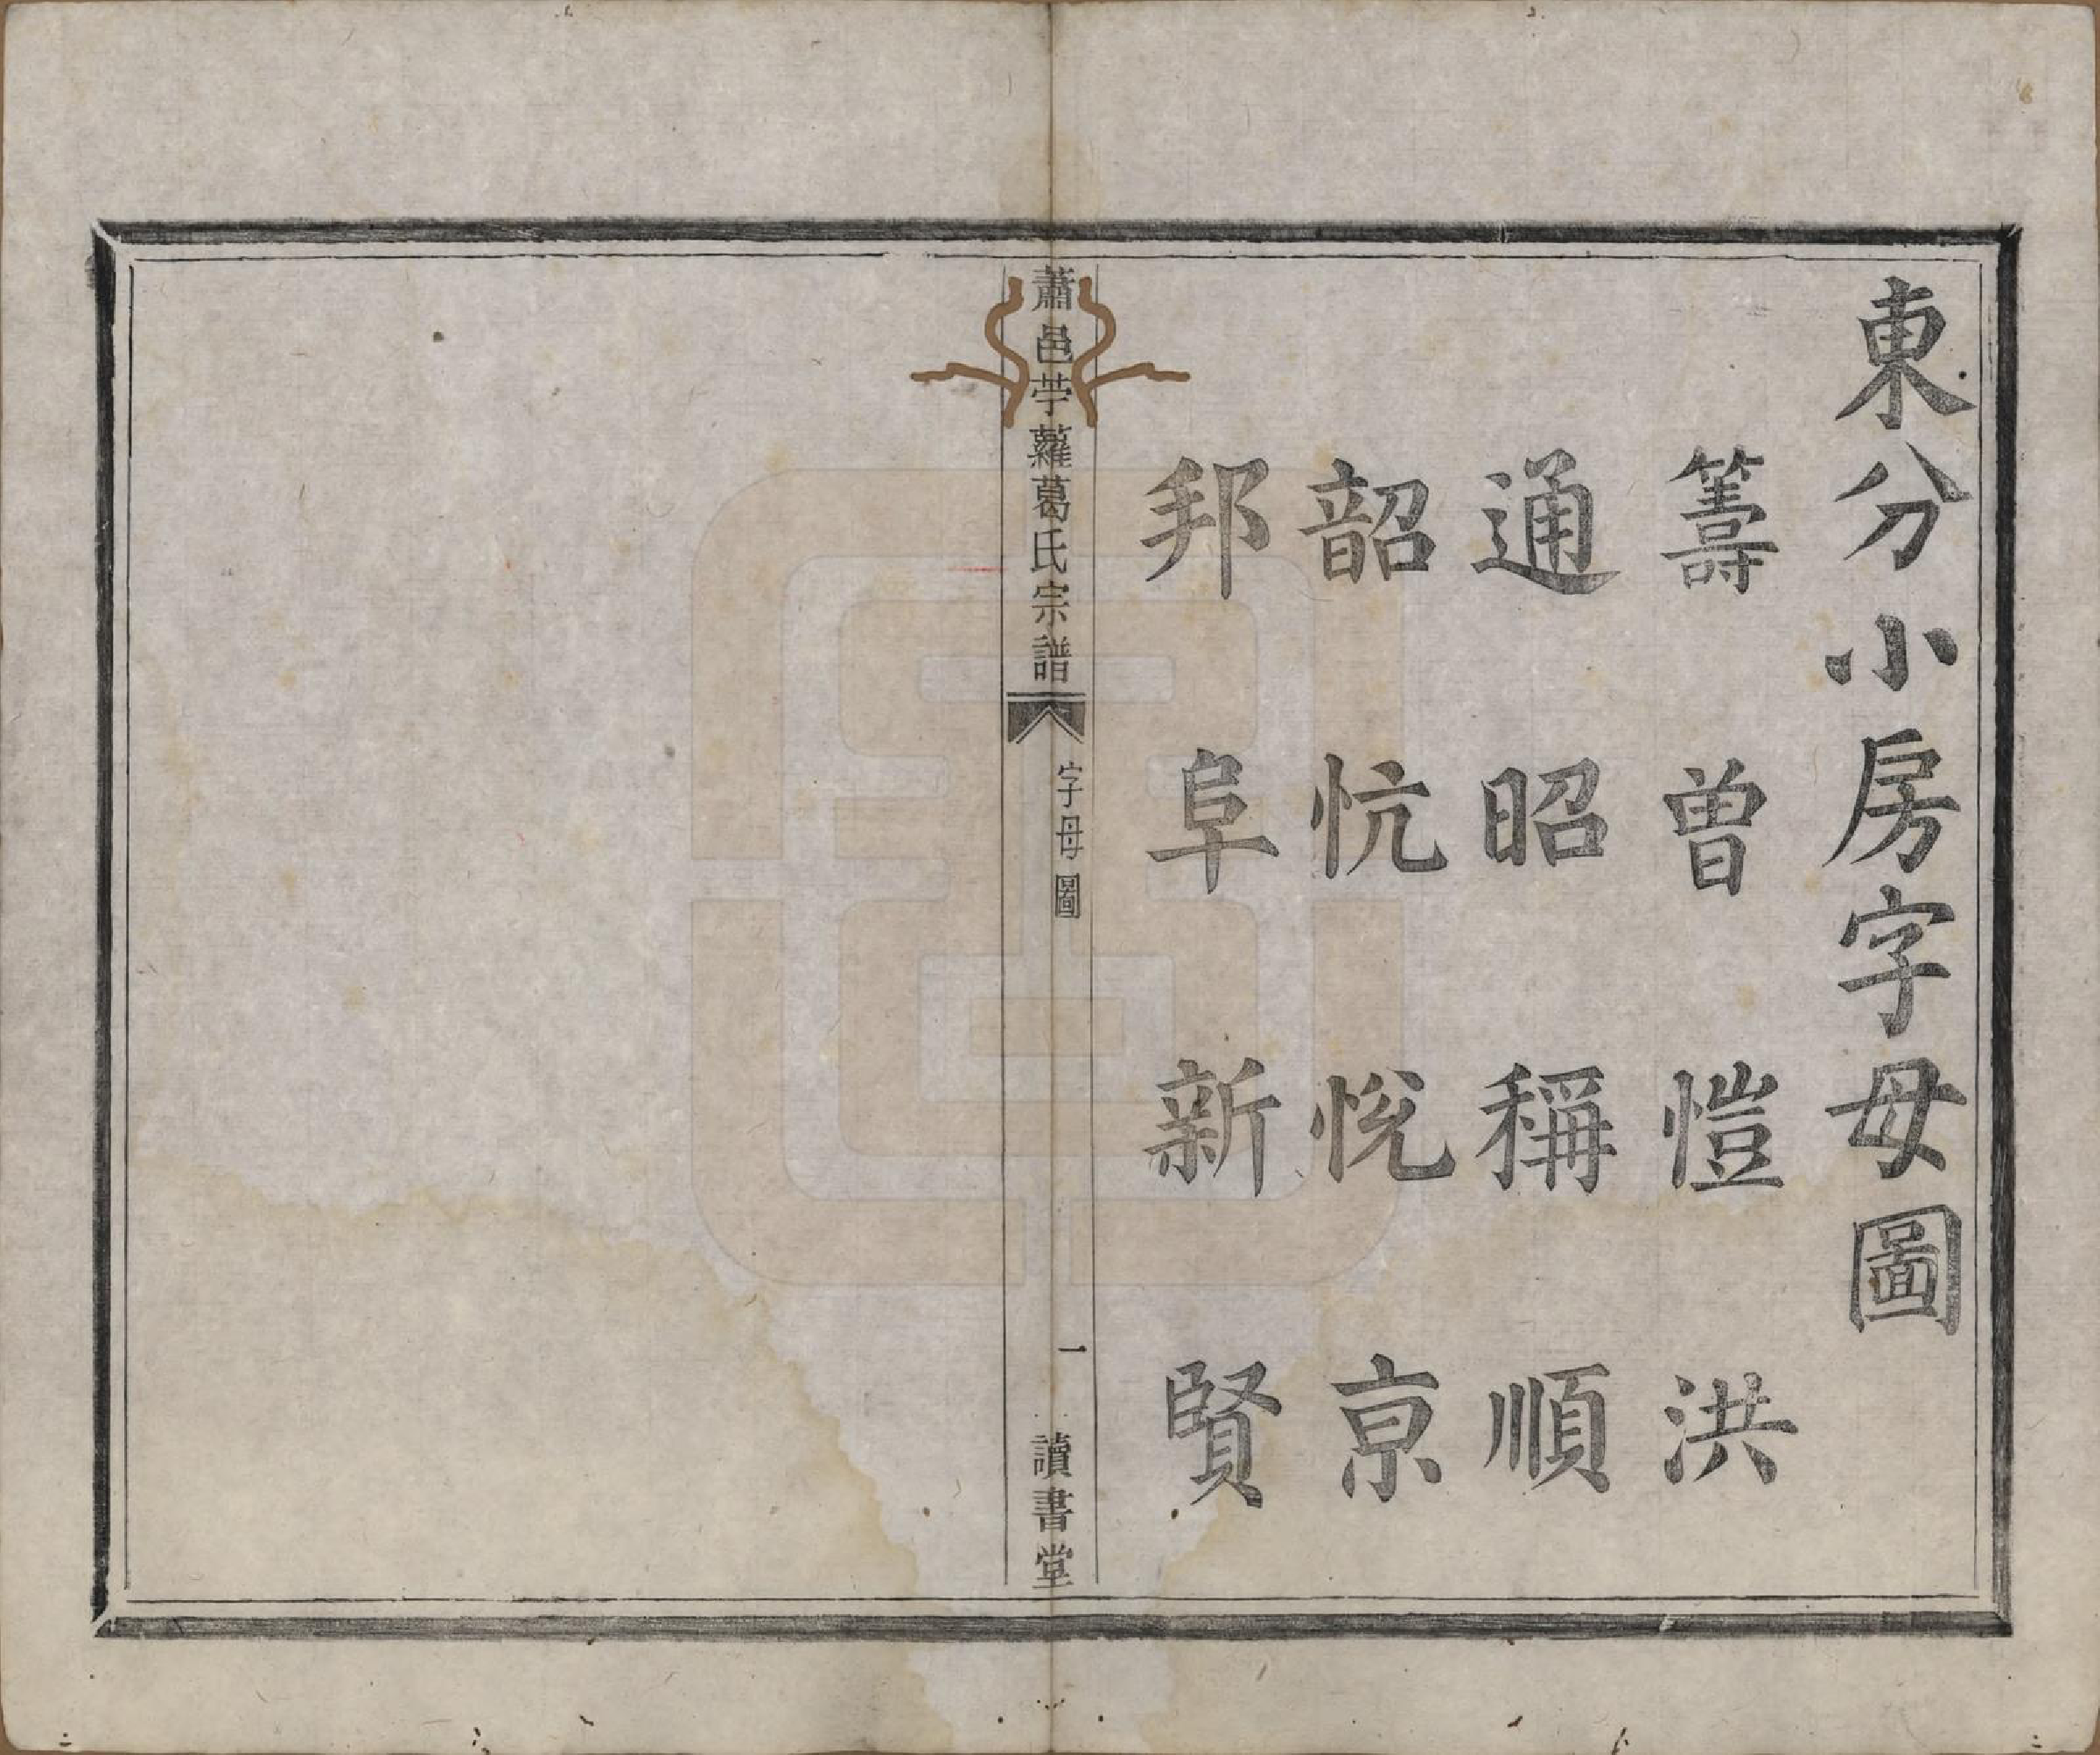 東分小房字母圖
籌 曾 愷 洪
通 昭 稱 順
韶 忼 悅 亰
邦 阜 新 賢
蕭邑苧蘿葛氏宗譜
字母圖
一
讀書堂